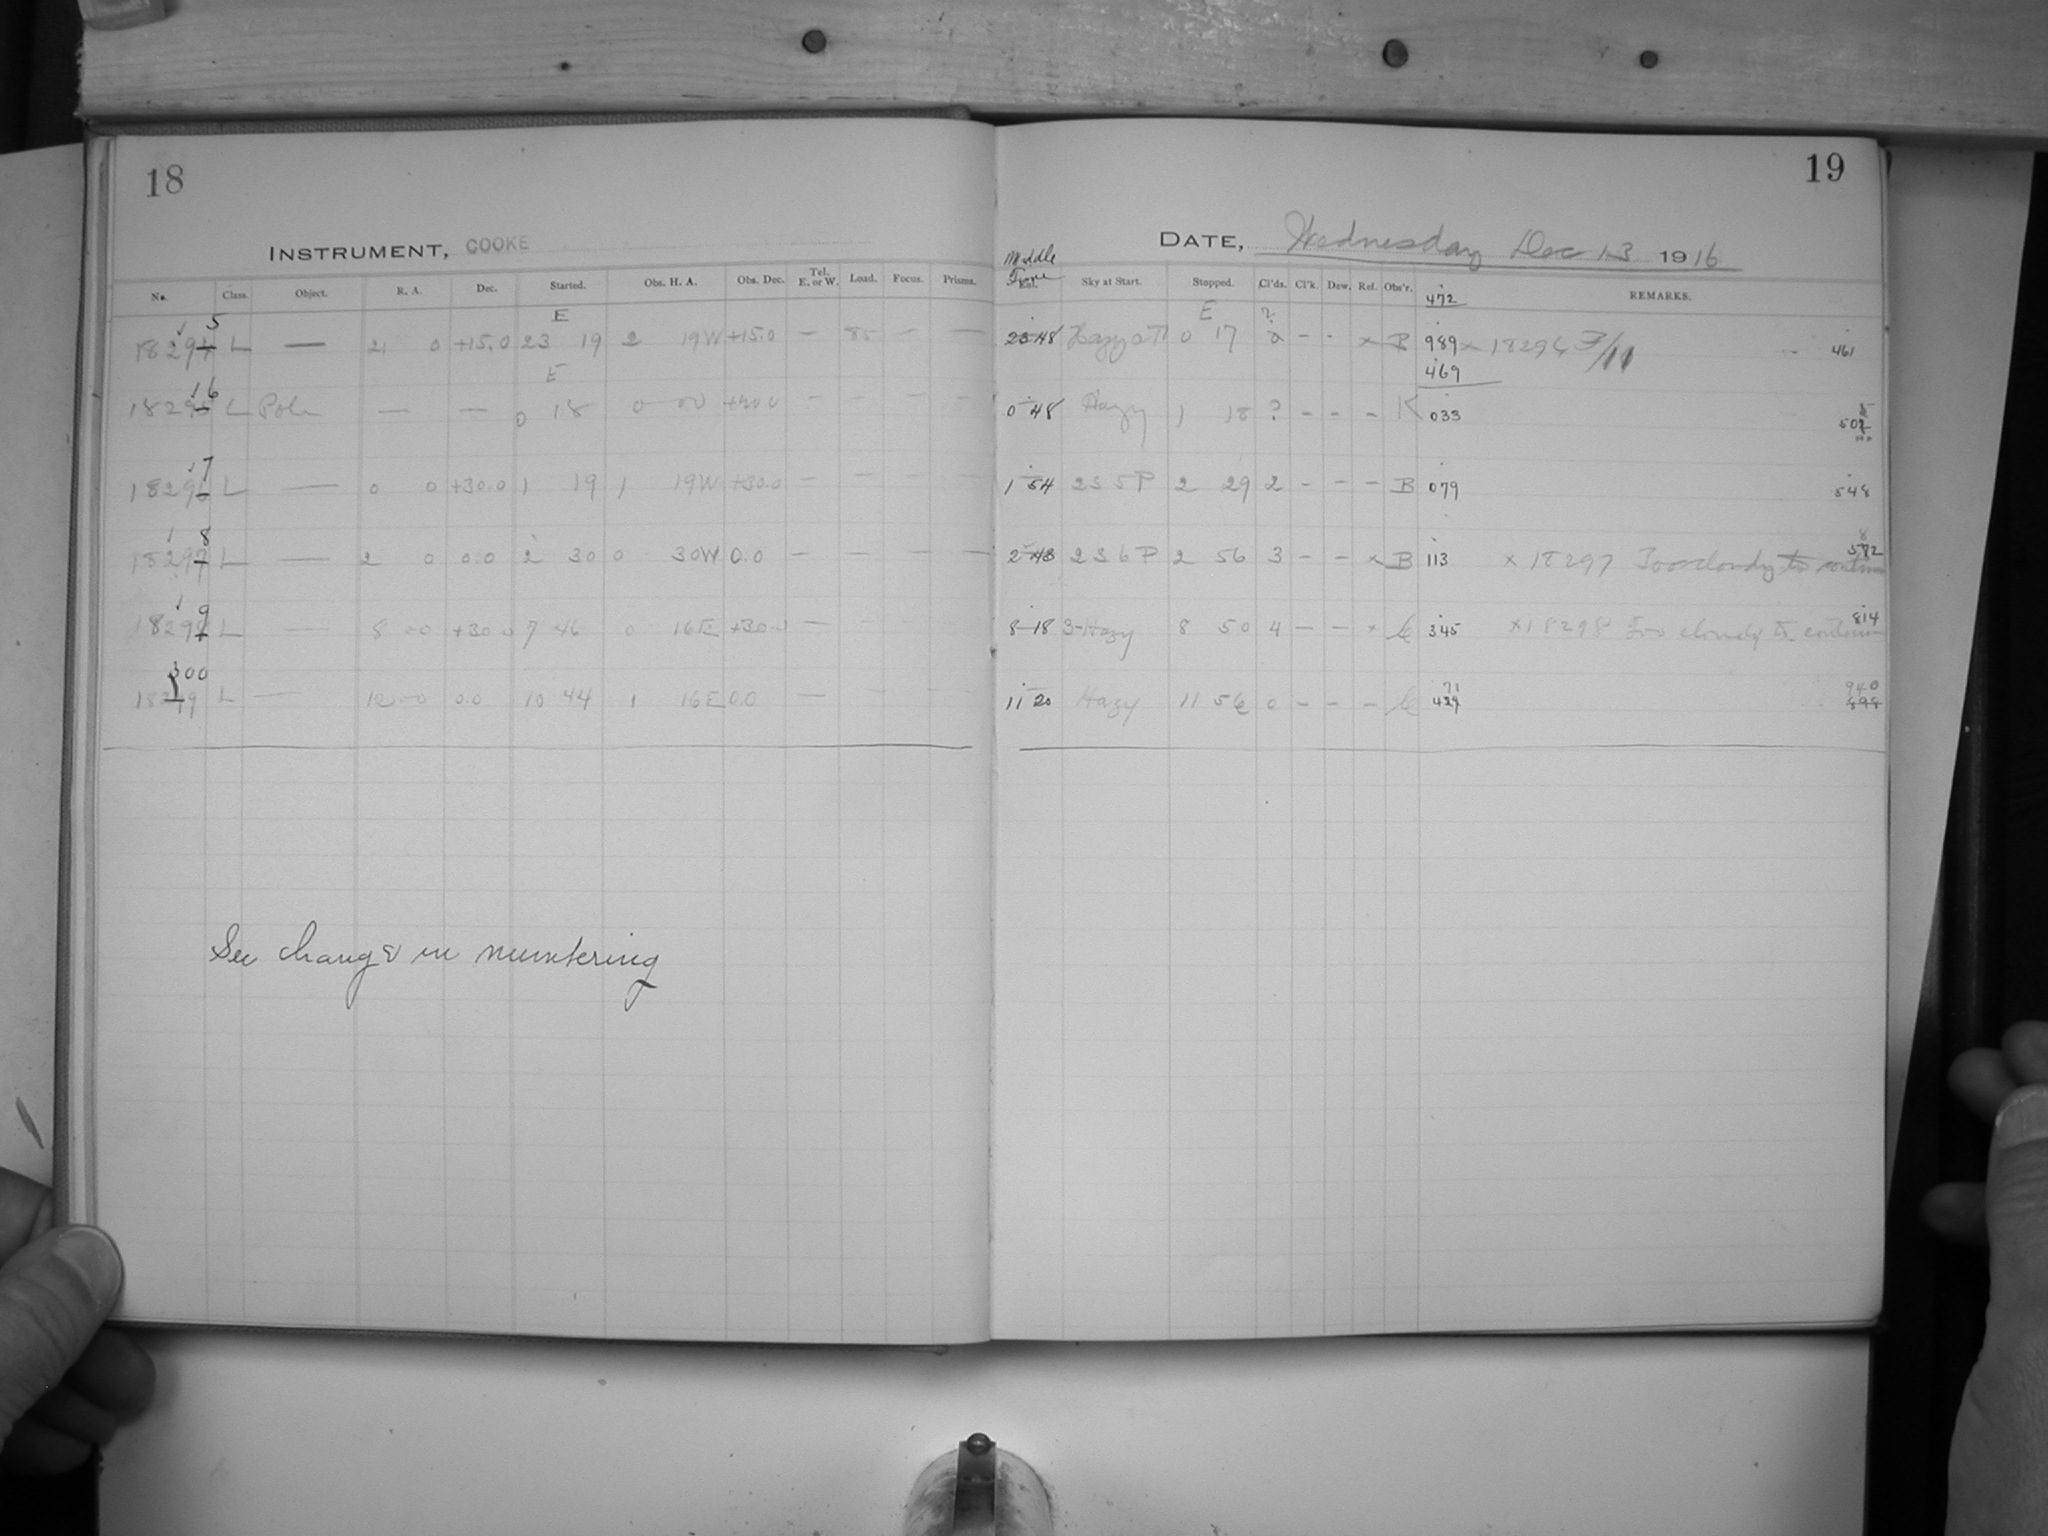 18
INSTRUMENT, COOKE
No. Class. Object. R. A. Dec. Started. Obs. H. A. Obs. Dec. Tel. E. or W. Load. Focus. Prisms.
E
5
18294 L — 21 0 +15.0 23 19 2 19W +15.0 — 85 — —
E
6
18295 L Pole — — 0 18 0 00 +90.0 — — — —
7
18296 L — 0 0 +30.0 1 19 1 19W +30.0 — — — —
8
18297 L — 2 0 0.0 2 30 0 30W 0.0 — — — —
9
18298 L — 8 00 +30.0 7 46 0 16E +30.0 —
300
18299 L — 12 00 0.0 10 44 1 16E 0.0 —
See change in numbering
19
DATE, Wednesday Dec 13 1916
Middle Time
Sky at Start. Stopped. Cl'ds. Cl'k. Dew. Ref. Obs'r. REMARKS.
472
E ?
23 48 0 17 - - x B 989 x 18294 461
469
0 48 Hazy 1 18 ? - - - K 033
1 54 2 S 5 P 2 29 2 - - - B 079 548
2 43 2 S 6 P 2 56 3 - - x B 113 x 18297 Too cloudy to continue
8 18 3-Hazy 8 50 4 - - x 345 x 18298 Too cloudy to continue 814
71 940
11 20 Hazy 11 56 0 - - - 898